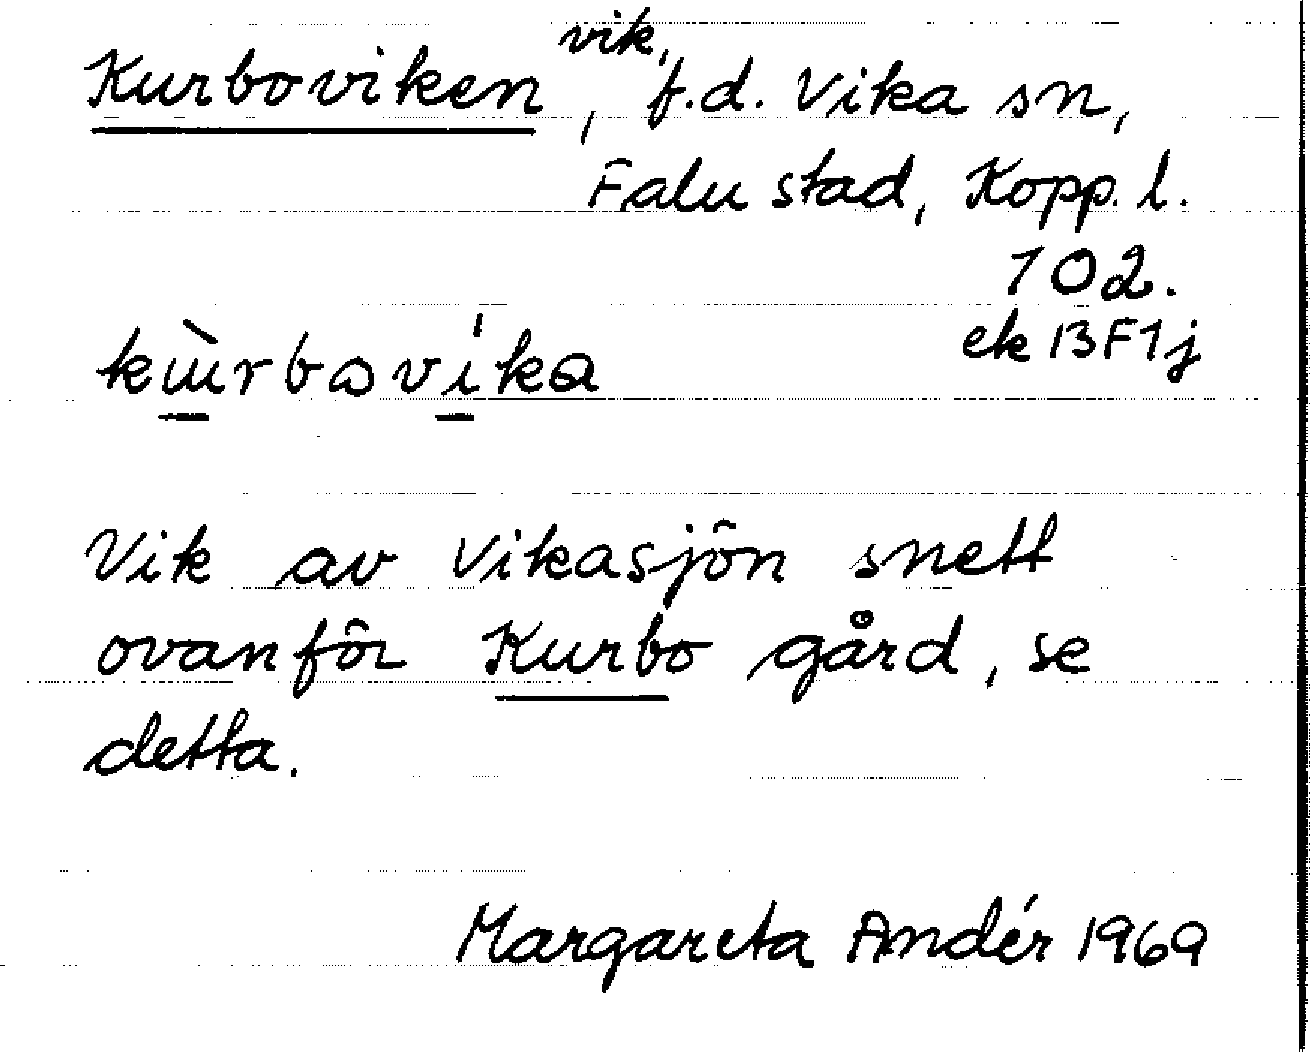 Kurboviken, vik, f.d. Vika sn,
Falu stad, Kopp. l.
102.
ek 13F1j
kùrbovika
Vik av Vikasjön snett
ovanför Kurbo gård, se
detta.
Margareta Andér 1969